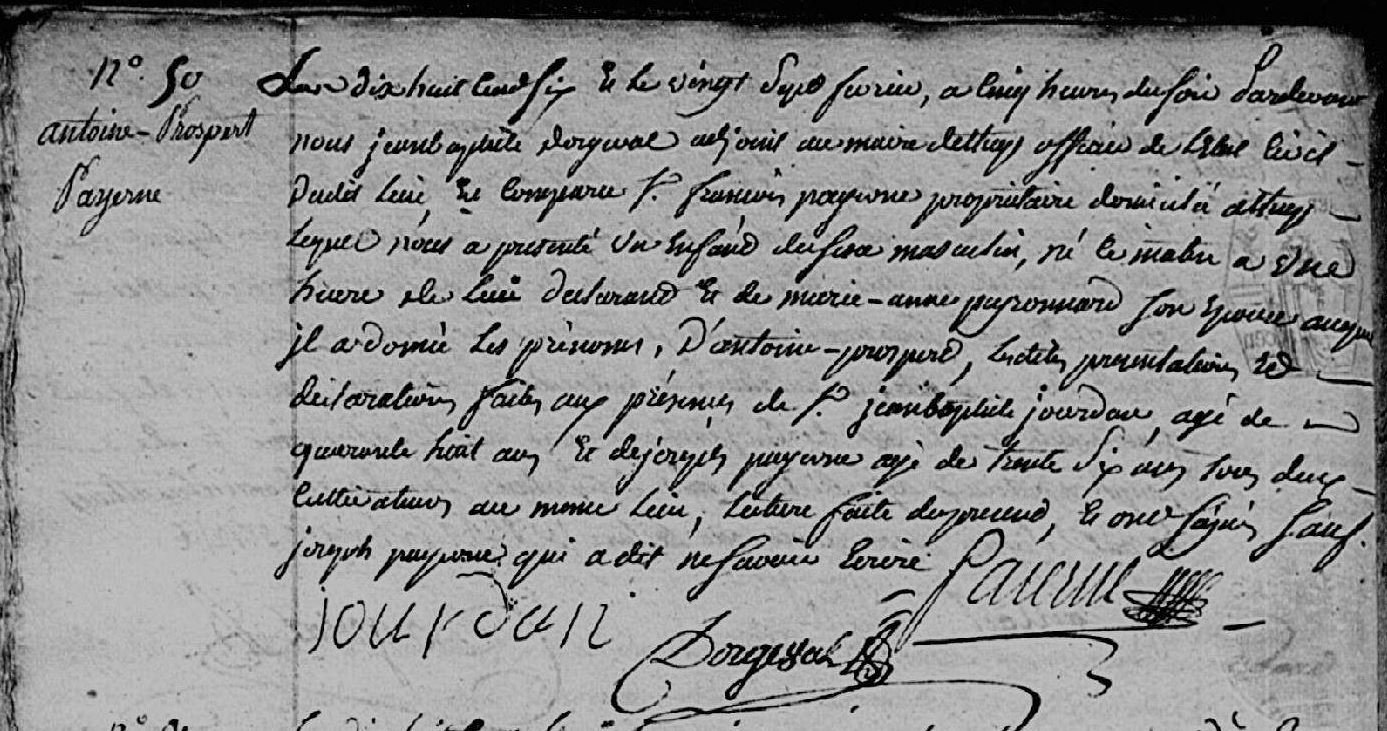 N° 50
antoine-Prospert
Payerne
L'an dix huit cent six et le vingt sept fevrier, a cinq heures du soir Pardevant
nous jean baptiste Dorgeval adjoint au maire detheys officier de l'état Civil
Dudit Lieu, Est Comparu Sr. francois payerne propriétaire domicilié atheys
Lequel nous a presenté Un Enfand du sexe masculin, né le matin a Une
heure de lui declarand Et de marie-anne payronnard son Epouse auquel
jl a donné Les prénoms, D'antoine-prosperd, Lesdites presentations Ed
declarations faites aux présences de Sr. jean baptiste jourdan, agé de
quarante huit ans Et dejoseph payerne agé de trente Six ans tous deux
Cultivateurs au meme Lieu, Lecture faite du presend, Et ond signés Sauf
joseph payerne qui a dit ne savoir Ecrire
Paierne
jourdan
Dorgeval
N°